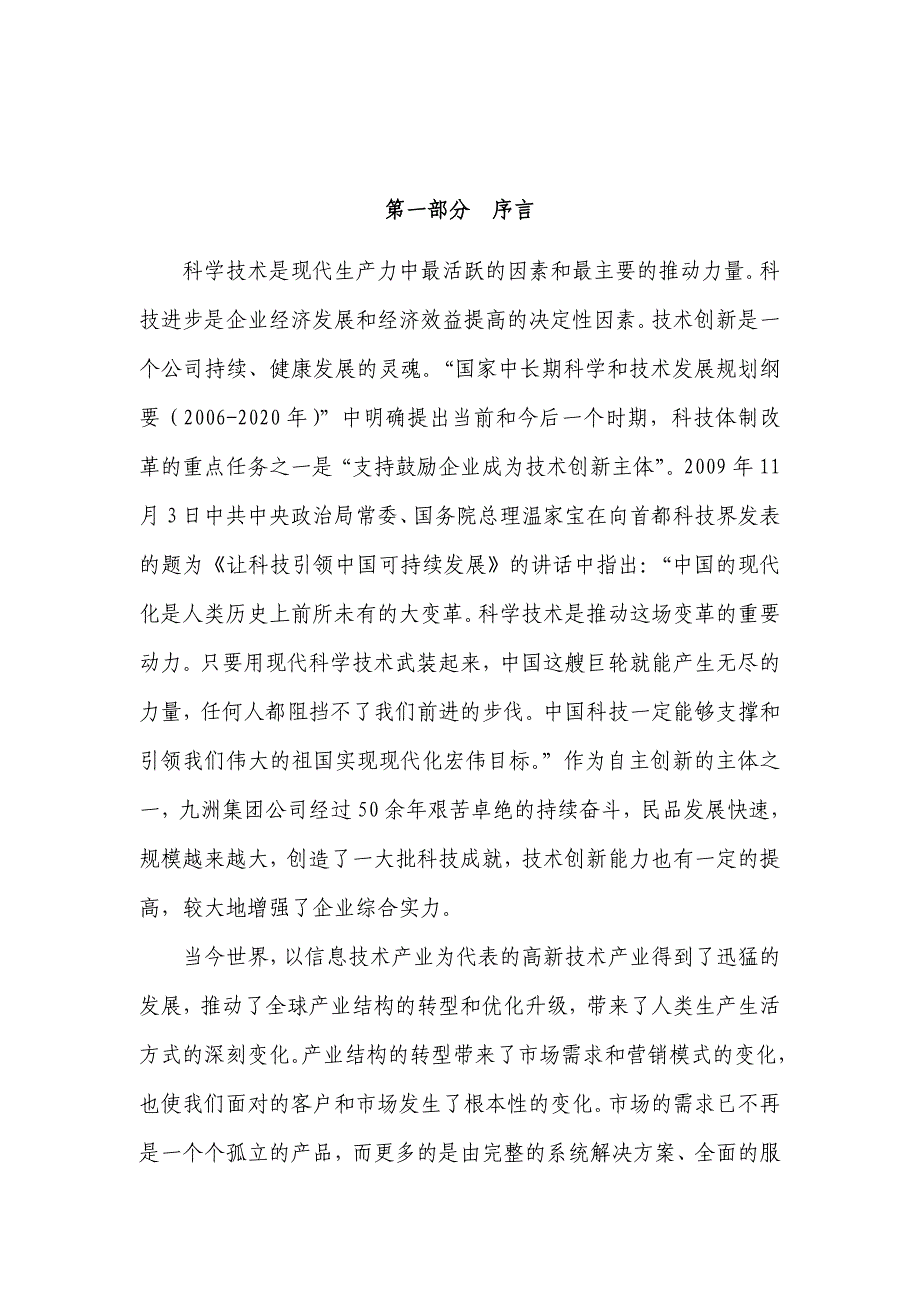 第一部分　序言
科学技术是现代生产力中最活跃的因素和最主要的推动力量。科
技进步是企业经济发展和经济效益提高的决定性因素。技术创新是一
个公司持续、健康发展的灵魂。“国家中长期科学和技术发展规划纲
要（2006-2020 年）”中明确提出当前和今后一个时期，科技体制改
革的重点任务之一是“支持鼓励企业成为技术创新主体”。2009 年 11
月 3 日中共中央政治局常委、国务院总理温家宝在向首都科技界发表
的题为《让科技引领中国可持续发展》的讲话中指出：“中国的现代
化是人类历史上前所未有的大变革。科学技术是推动这场变革的重要
动力。只要用现代科学技术武装起来，中国这艘巨轮就能产生无尽的
力量，任何人都阻挡不了我们前进的步伐。中国科技一定能够支撑和
引领我们伟大的祖国实现现代化宏伟目标。”作为自主创新的主体之
一，九洲集团公司经过 50 余年艰苦卓绝的持续奋斗，民品发展快速，
规模越来越大，创造了一大批科技成就，技术创新能力也有一定的提
高，较大地增强了企业综合实力。
当今世界，以信息技术产业为代表的高新技术产业得到了迅猛的
发展，推动了全球产业结构的转型和优化升级，带来了人类生产生活
方式的深刻变化。产业结构的转型带来了市场需求和营销模式的变化，
也使我们面对的客户和市场发生了根本性的变化。市场的需求已不再
是一个个孤立的产品，而更多的是由完整的系统解决方案、全面的服